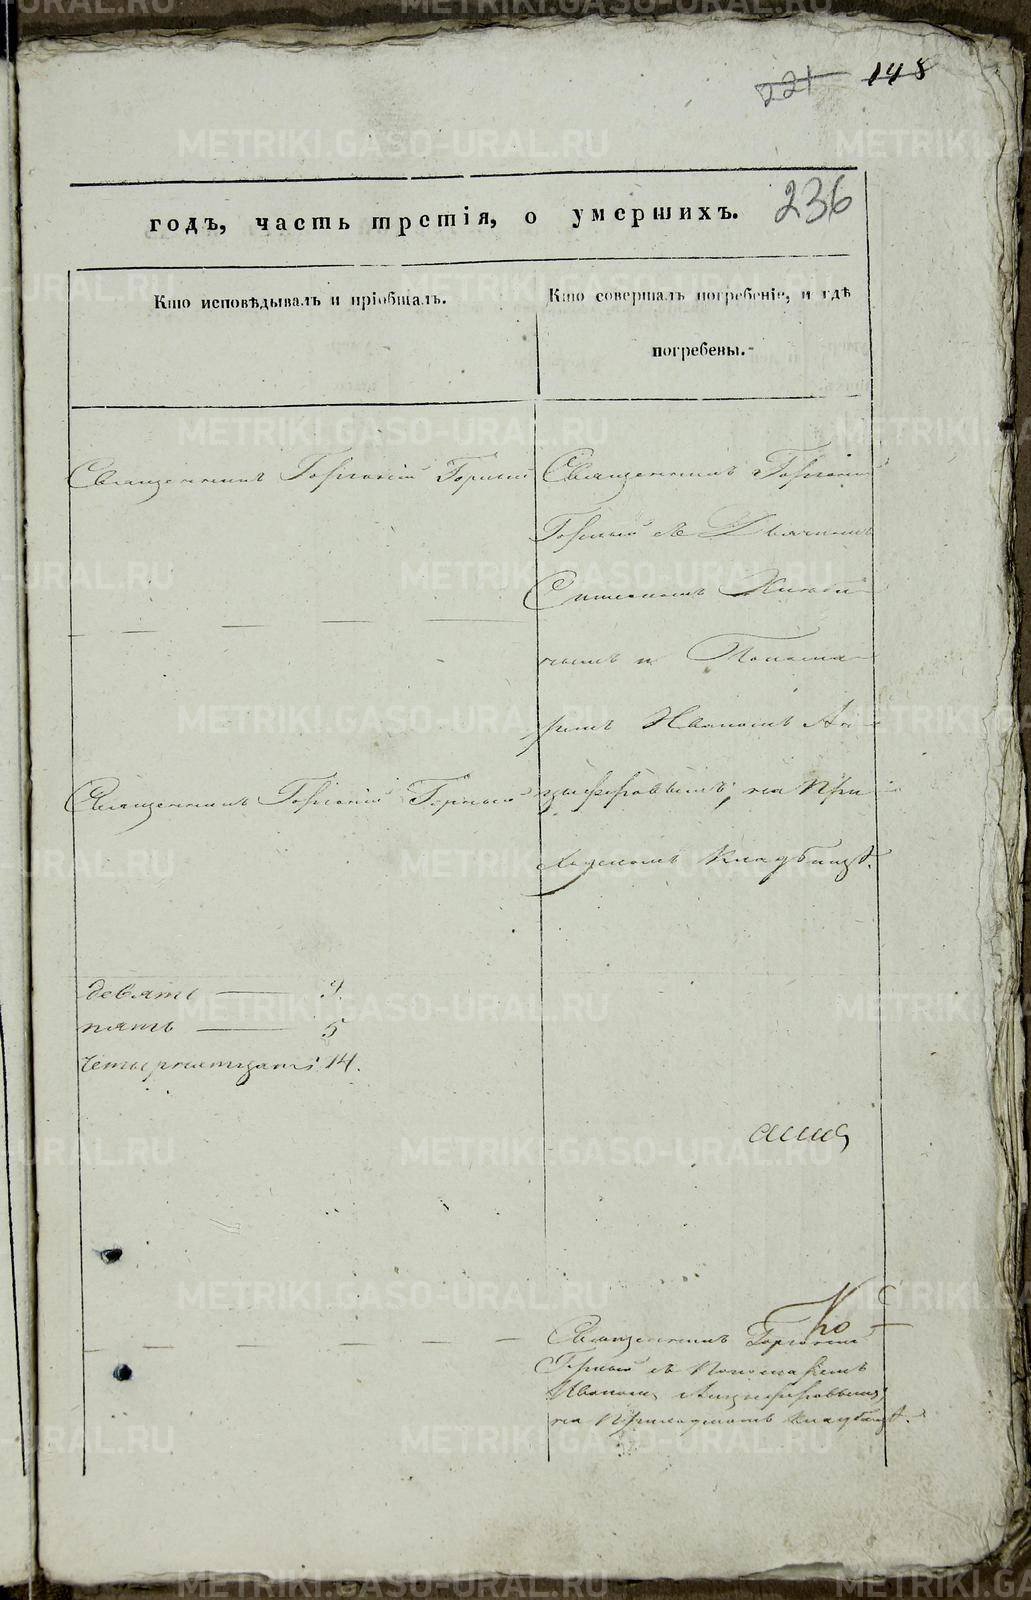 221 148
236
годъ, часть третія, о умершихъ.
Кто исповѣдывалъ и пріобщалъ.
Кто совершалъ погребеніе, и гдѣ
погребены.
Священникъ Горгоній Горный
Священникъ Горгоній
Горный съ Дьячкомъ
Симеономъ
нымъ и Понома
ремъ Иваномъ Ан
цыферовымъ, на При
ходскомъ кладбищѣ.
Священникъ Горгоній Горный
девять — 9.
пять — 5
четырнатцать 14.
Священникъ Горгоній
Горный съ Пономаремъ
Иваномъ Анцыферовымъ,
на Приходскомъ кладбищѣ.
METRIKI.GASO-URAL.RU